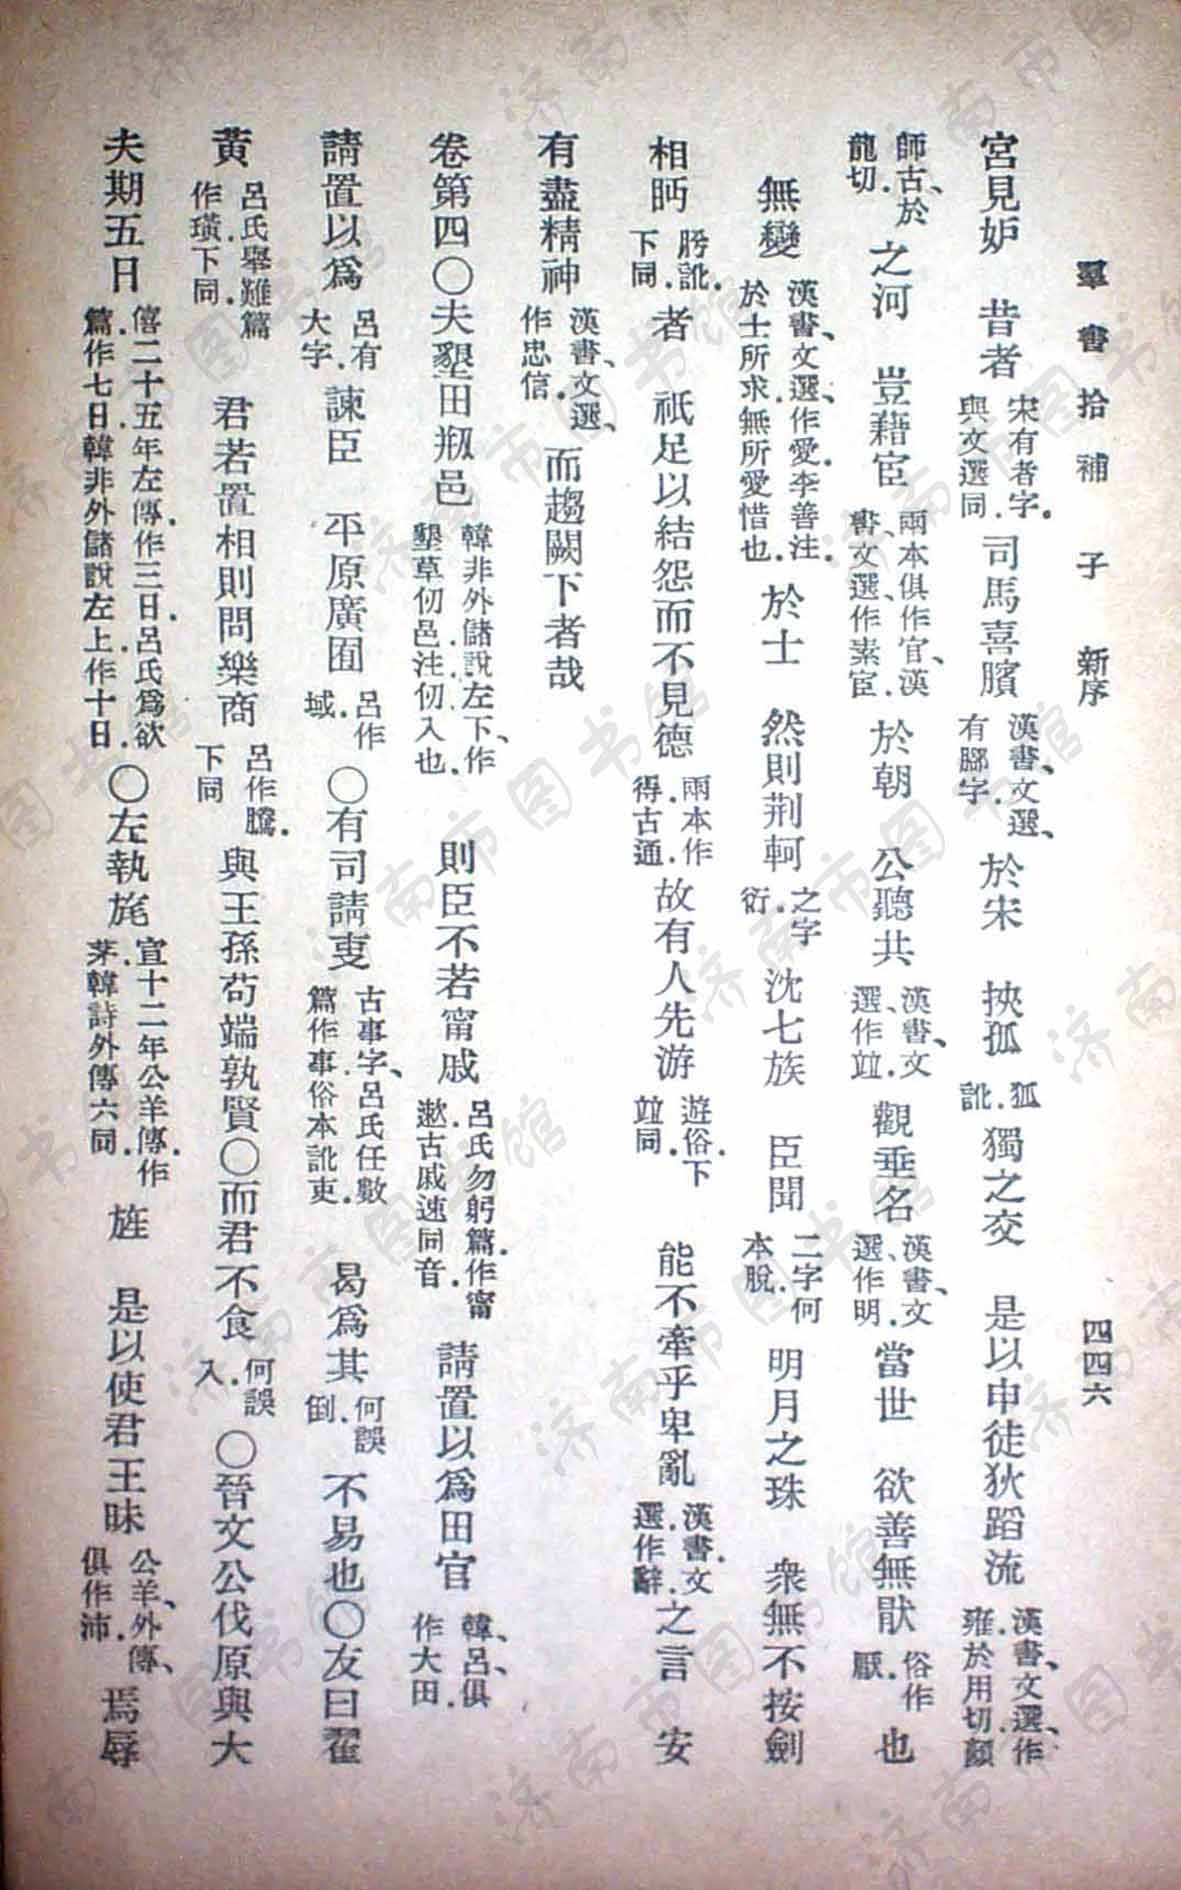 羣書拾補　子　新序　四四六
宮見妒　昔者　宋有者字。與文選同。司馬喜臏　漢書、文選、有腳字。於宋　挾孤　狐訛。獨之交　是以申徒狄蹈流　漢書、文選、作雍。於用切。顏
師古、於龍切。之河　豈藉宦　兩本俱作官、漢書、文選、作素宦。於朝　公聽共　漢書、文選、作竝。觀垂名　漢書、文選、作明。當世　欲善無猒　俗作厭。也
無變　漢書、文選、作愛。李善注。於士所求。無所愛惜也。於士　然則荆軻　之字衍。沈七族　臣聞　二字何本脫。明月之珠　衆無不按劍
相眄　眄訛。下同。者　祇足以結怨而不見德　兩本作得。古通。故有人先游　遊俗。下竝同。能不牽乎卑亂　漢書、文選、作辭。之言　安
有盡精神　漢書、文選、作忠信。而趨闕下者哉
卷第四○夫墾田剏邑　韓非外儲說左下、作墾草仞邑。注仞、入也。則臣不若甯戚　呂氏勿躬篇。作甯遬。古戚速同音。請置以爲田官　韓、呂、俱作大田。
請置以爲　呂有大字。諫臣　平原廣囿　呂作域。○有司請叓　古事字、呂氏任數篇作事。俗本訛吏。曷爲其　何誤倒。不易也○友曰翟
黃　呂氏舉難篇作璜。下同。君若置相則問樂商　呂作騰。下同　與王孫苟端孰賢○而君不食　何誤入。○晉文公伐原與大
夫期五日　僖二十五年左傳。作三日。呂氏爲欲篇。作七日。韓非外儲說左上。作十日。○左執旄　宣十二年公羊傳。作茅。韓詩外傳六同。旌　是以使君王昧　公羊、外傳、俱作沛。焉辱